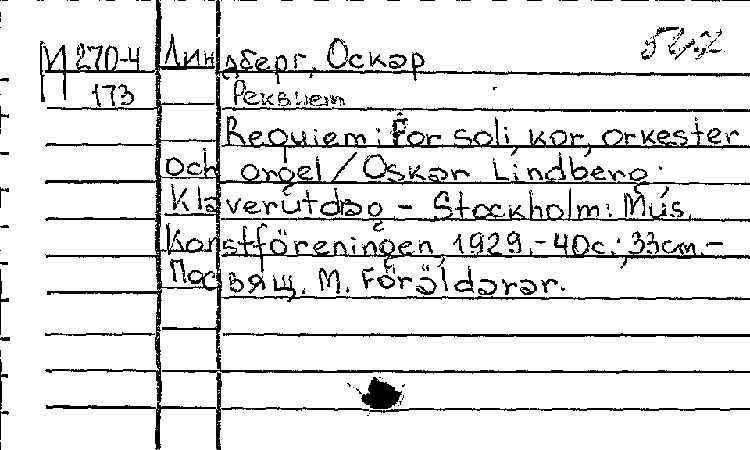 И 270-4 Линдберг, Оскар
173 Реквием
Requiem: För soli, kor, orkester
och orgel / Oskar Lindberg.
Klaverutdag – Stockholm: Mus.
Konstföreningen, 1929. – 40с.; 33cm. –
Посвящ. М. Föräldarar.